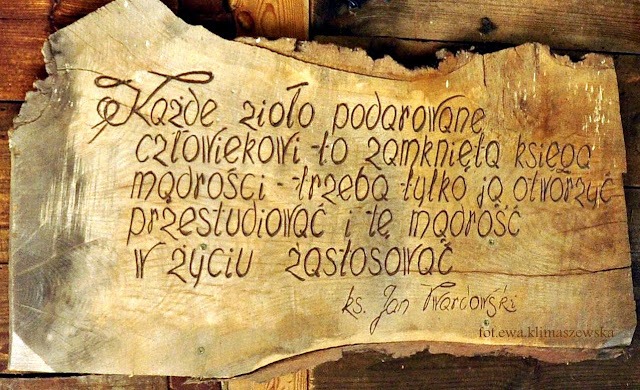 Każde zioło podarowane
człowiekowi - to zamknięta księga
mądrości - trzeba tylko ją otworzyć
przestudiować i tę mądrość
w życiu zastosować
ks. Jan Twardowski
fot.ewa.klimaszewska